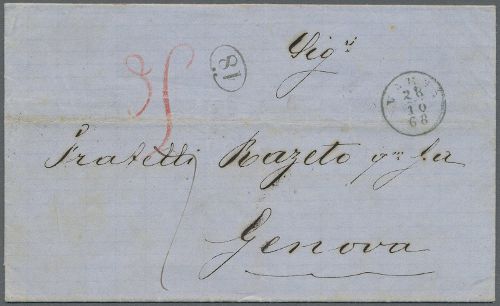 Sig.ri
18.
28
10
68
Fratelli Razeto
Genova